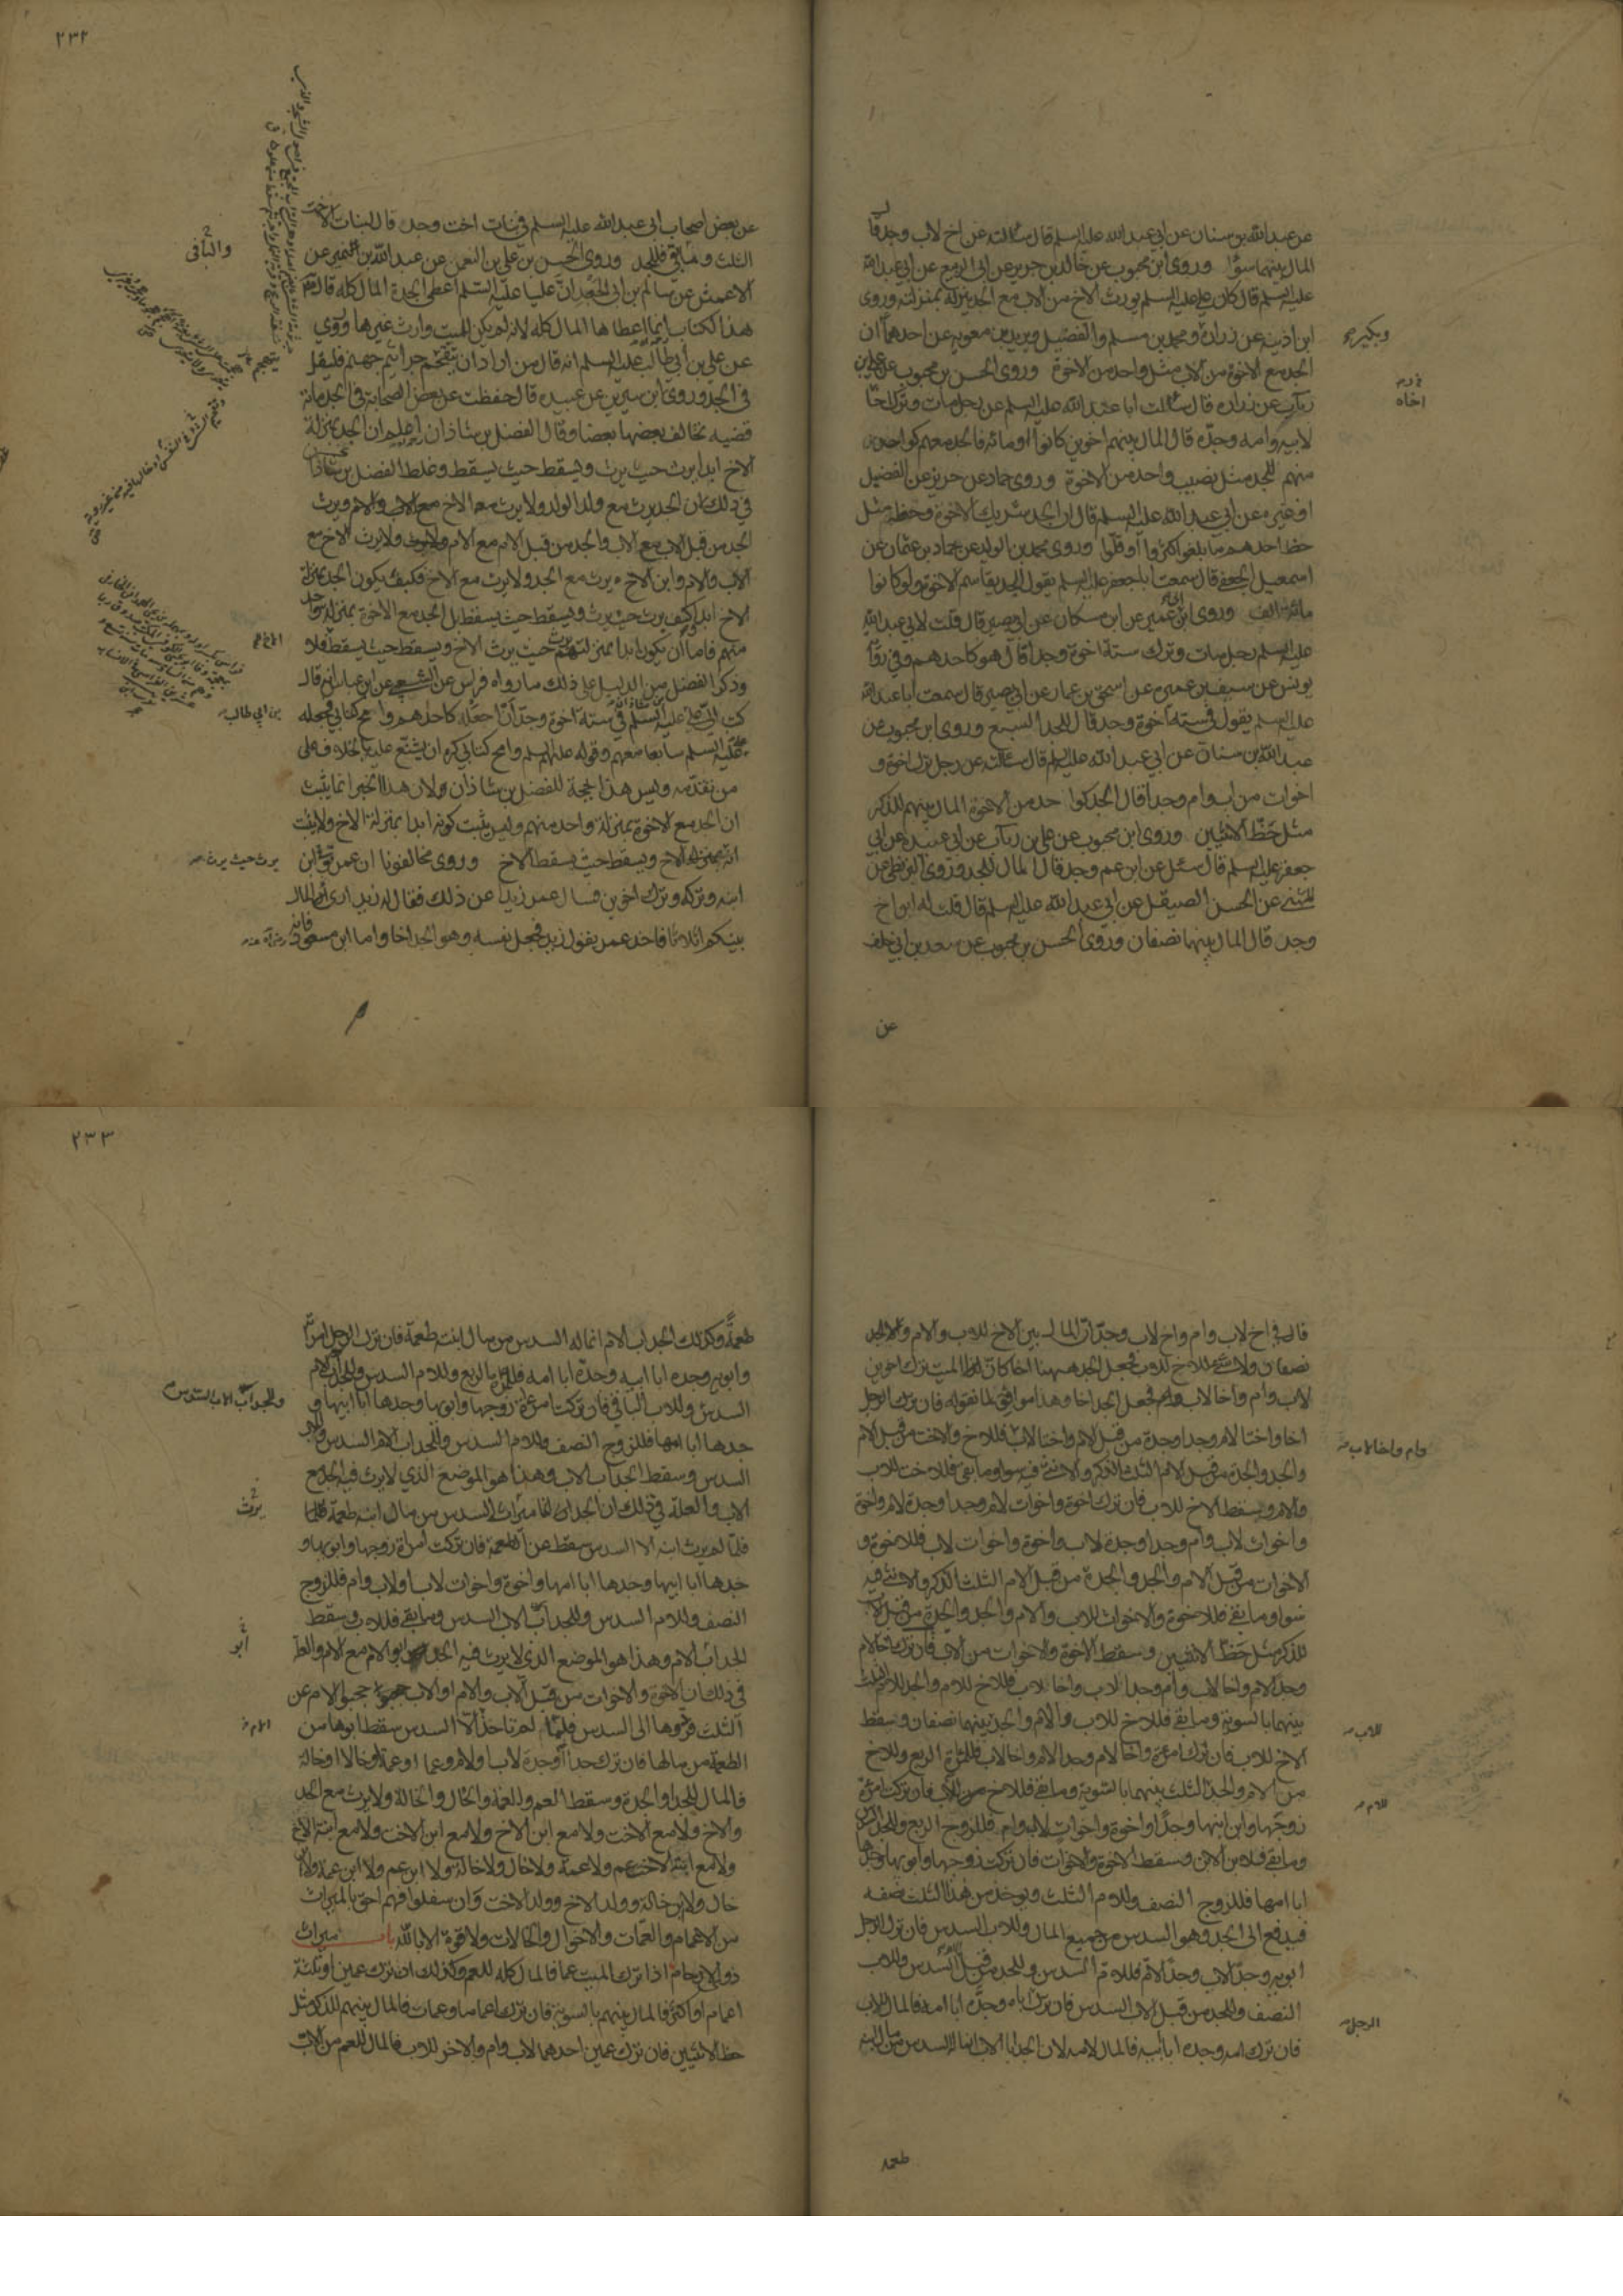 عن عبد الله بن سنان عن ابي عبد الله عليه السلم قال سالته عن اخ لاب وجد قال
المال بينهما سوآ وروى ابن محبوب عن خالد بن جرير عن ابي الربيع عن ابي عبد الله
عليه السلم قال كان علي عليه السلم يورث الاخ من الاب مع الجد ينزله بمنزلته وروى
ابن اذينه عن زرارة ومحمد بن مسلم والفضيل وبريد بن معويه عن احدهما ان
وبكير
الجد مع الاخوة من الاب مثل واحد من الاخوة وروى الحسن بن محبوب عن علي بن
رئاب عن زراره قال سالت ابا عبد الله عليه السلم عن رجل مات وترك اخا
اخاه
لابيه وامه وجده قال المال بينهم اخوين كانوا او مائه فالجد معهم كواحد
منهم للجد مثل نصيب واحد من الاخوة وروى حماد عن حريز عن الفضيل
او غيره عن ابي عبد الله عليه السلم قال ان الجد شريك الاخوة وحظه مثل
حظ احدهم ما بلغوا كثروا او قلوا وروى محمد بن الوليد عن حماد بن عثمان عن
اسمعيل الجعفي قال سمعت ابا جعفر عليه السلم يقول الجد يقاسم الاخوة ولو كانوا
مائة الف وروى ابن ابي عمير عن ابن مسكان عن ابي بصير قال قلت لابي عبد الله
عليه السلم رجل مات وترك ستة اخوة وجدا قال هو كاحدهم وفي رواية
يونس عن سيف بن عميرة عن اسحق بن عمار عن ابي بصير قال سمعت ابا عبد الله
عليه السلم يقول في ستة اخوة وجد قال للجد السبع وروى ابن محبوب عن
عبد الله بن سنان عن ابي عبد الله عليه السلم قال سالته عن رجل ترك اخوة و
اخوات من اب وام وجدا قال الجد كواحد من الاخوة المال بينهم للذكر
مثل حظ الانثيين وروى ابن محبوب عن علي بن رئاب عن ابي عبيدة عن ابي
جعفر عليه السلم قال سئل عن ابن عم وجد قال المال للجد وروى البزنطي عن
المثنى عن الحسن الصيقل عن ابي عبد الله عليه السلم قال قلت له ابن اخ
وجد قال المال بينهما نصفان وروى الحسن بن محبوب عن سعد بن ابي خلف
عن
٢٣٢
عن بعض اصحاب ابي عبد الله عليه السلم في بنات اخت وجد قال لبنات الاخت
الثلث وما بقي فللجد وروى الحسن بن علي بن النعمن عن عبد الله بن نمير عن
والباقي
الاعمش عن سالم بن ابي الجعد ان عليا عليه السلم اعطى الجدة المال كله قال
هذا الكتاب انما اعطاها المال كله لانه لم يكن للميت وارث غيرها وروي
عن علي بن ابي طالب عليه السلم انه قال من اراد ان يتقحم جراثيم جهنم فليقل
في الجد وروى ابن سيرين عن عبيده قال حفظت عن بعض الصحابة في الجد مائة
قضيه تخالف بعضها بعضا وقال الفضل بن شاذان اعلم ان الجد بمنزلة
الاخ ابدا يرث حيث يرث ويسقط حيث يسقط وغلط الفضل بن شاذان
في ذلك لان الجد يرث مع ولد الولد ولا يرث معه الاخ مع الاب والام ويرث
الجد من قبل الاب مع الاب والجد من قبل الام مع الام ولا يرث الاخ مع
الاب والام وابن الاخ يرث مع الجد ولا يرث مع الاخ فكيف يكون الجد بمنزلة
الاخ ابدا كيف يرث حيث يرث ويسقط حيث يسقط بل الجد مع الاخوة بمنزلة واحد
منهم فاما ان يكون ابدا بمنزلتهم يرث حيث يرث الاخ ويسقط حيث يسقط فلا
وذكر الفضل من الدليل على ذلك ما رواه فراس عن الشعبي عن ابن عباس انه قال
كتب الي علي عليه السلم في ستة اخوة وجد ان اجعله كاحدهم وامح كتابي فجعله
بن ابي طالب
علي عليه السلم سابعا معهم وقوله عليه السلم وامح كتابي كره ان يشنع عليه بالخلاف على
من تقدمه وليس هذا بحجة للفضل بن شاذان ولان هذا الخبر انما يثبت
ان الجد مع الاخوة بمنزلة واحد منهم وليس يثبت كونه ابدا بمنزلة الاخ ولا يثبت
انه بمنزلة الاخ ويسقط حيث يسقط الاخ وروى مخالفونا ان عمر توفى ابن
يرث حيث يرث
ابنه وتركه وترك اخوين فسال عمر زيدا عن ذلك فقال له زيد ارى المال
بينكم اثلاثا فاخذ عمر بقول زيد فجعل نفسه وهو الجد اخا واما ابن مسعود فانه
قال في اخ لاب وام واخ لاب وجد ان المال بين الاخ للاب والام والجد
نصفان ولا شئ للاخ للاب فجعل الجد ههنا اخا كان الميت ترك اخوين
لاب وام واخا لاب ولم يجعل الجد اخا وهذا موافق لما نقوله فان ترك الرجل
وام واخا لاب
اخا واختا لام وجدا وجدة من قبل الام واختا لاب فللاخ والاخت من قبل الام
والجد والجدة من قبل الام الثلث الذكر والانثى فيه سوا وما بقي فللاخت للاب
والام وسقط الاخ للاب فان ترك اخوة واخوات لام وجدا وجدة لام واخوة
واخوات لاب وام وجدا وجدة لاب واخوة واخوات لاب فللاخوة و
الاخوات من قبل الام والجد والجدة من قبل الام الثلث الذكر والانثى فيه
سوا وما بقي فللاخوة والاخوات للاب والام والجد والجدة من قبل الاب
للذكر مثل حظ الانثيين وسقط الاخوة والاخوات من الاب فان ترك اخا لام
وجدا لام واخا لاب وام وجدا لاب واخا لاب فللاخ للام والجد للام الثلث
بينهما بالسوية وما بقي فللاخ للاب والام والجد بينهما نصفان وسقط
للاب
الاخ للاب فان ترك امرءة واخا لام وجدا لام واخا لاب فللمرءة الربع وللاخ
من الام والجد الثلث بينهما بالسوية وما بقي فللاخ من الاب فان تركت امرءة
للام
زوجها وابن ابنها وجدا واخوة واخوات لاب وام فللزوج الربع وللجد السدس
وما بقي فلابن الابن وسقط الاخوة والاخوات فان تركت زوجها وابويها وجدها
ابا امها فللزوج النصف وللام الثلث ويؤخذ من هذا الثلث نصفه
فيدفع الى الجد وهو السدس من جميع المال وللاب السدس فان ترك الرجل
ابويه وجدا لاب وجدا لام فللام السدس وللجد من قبل الام السدس وللاب
النصف وللجد من قبل الاب السدس فان ترك اباه وجده ابا امه فالمال للاب
الرجل
فان ترك امه وجده ابا ابيه فالمال لامه لان الجد ابا الاب انما له السدس من مال ابنه
طعمة
٢٣٣
طعمة وكذلك الجد اب الام انما له السدس من مال ابنته طعمة فان ترك الرجل امراة
وابويه وجده ابا ابيه وجده ابا امه فللمراة الربع وللام السدس وللجد اب الام
السدس وللاب الباقي فان تركت امرءة زوجها وابويها وجدها ابا ابيها و
وللجد اب الاب السدس
جدها ابا امها فللزوج النصف وللام السدس وللجد اب الام السدس وللاب
السدس وسقط الجد اب الاب وهذا هو الموضع الذي لا يرث فيه الجد مع
الاب والعلة في ذلك ان الجد انما ميراثه السدس من مال ابنه طعمة
يرث
فلما لم يرث ابنه الا السدس سقط عن الطعمة فان تركت امراة زوجها وابويها و
جدها ابا ابيها وجدها ابا امها واخوة واخوات لاب او لاب وام فللزوج
النصف وللام السدس وللجد اب الاب السدس وما بقي فللاب وسقط
الجد اب الام وهذا هو الموضع الذي لا يرث فيه الجد ابو الام مع الام والعلة
ابو
في ذلك ان الاخوة والاخوات من قبل الاب والام او الاب حجبوا الام عن
الثلث فردوها الى السدس فلما لم تاخذ الا السدس سقط ابوها من
الام
الطعمة من مالها فان ترك جدا او جدة لاب او لام وعما او عمة او خالا او خالة
فالمال للجد او الجدة وسقط العم والعمة والخال والخالة ولا يرث مع الجد
والاخ ولا مع الاخت ولا مع ابن الاخ ولا مع ابن الاخت ولا مع ابنة الاخ
ولا مع ابنة الاخت عم ولا عمة ولا خال ولا خالة ولا ابن عم ولا ابن عمة ولا ابن
خال ولا ابن خالة وولد الاخ وولد الاخت وان سفلوا فهم احق بالميراث
من الاعمام والعمات والاخوال والخالات ولا قوة الا بالله باب ميراث
ذوي الارحام اذا ترك الميت عما فالمال كله للعم وكذلك ان ترك عمين او ثلثة
اعمام او اكثر فالمال بينهم بالسوية فان ترك اعماما وعمات فالمال بينهم للذكر مثل
حظ الانثيين فان ترك عمين احدهما لاب وام والاخر للاب فالمال للعم من الاب